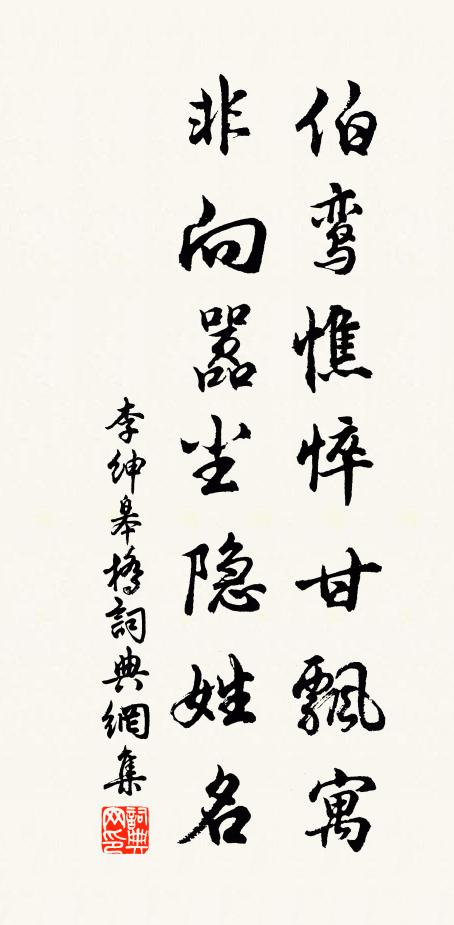 伯鸾憔悴甘飘寓
非向嚣尘隐姓名
李绅皋橋詞典網集
詞典网印